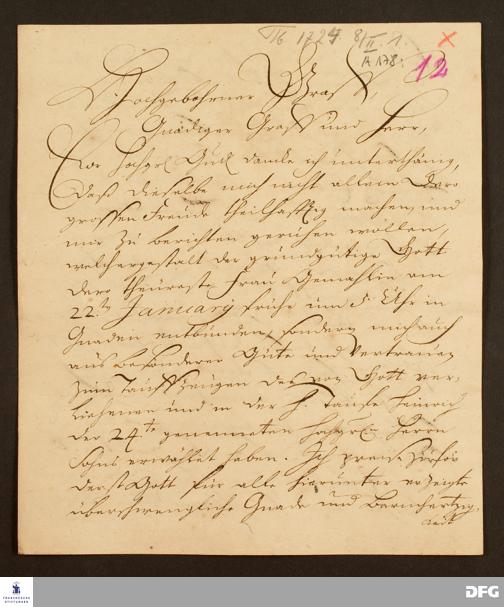 1724. 8/II. 1.
A 178.
12
Hochgebohrner Graff,
Gnädiger Graff und Herr,
Ew. Hochgrl. Gnd. dancke ich unterthänig,
daß dieselbe mich nicht allein Dero
grossen Freude theilhafftig machen, und
mir zu berichten geruhen wollen,
welchergestalt der grundgütige Gott
dero theureste Frau Gemahlin am
22.ten January frühe um 5. Uhr in
Gnaden entbunden, sondern mich auch
aus besonderer Güte und Vertrauen
zum Tauffzeugen des von Gott ver-
liehenen und in der H. Tauffe Heinrich
der 24.te genenneten Hochgrl. Herrn
Sohns erwählet haben. Ich preise
derst Gott für alle hierunter erzeigte
überschwengliche Gnade und Barmhertzig-
FRANCKESCHE STIFTUNGEN
DFG